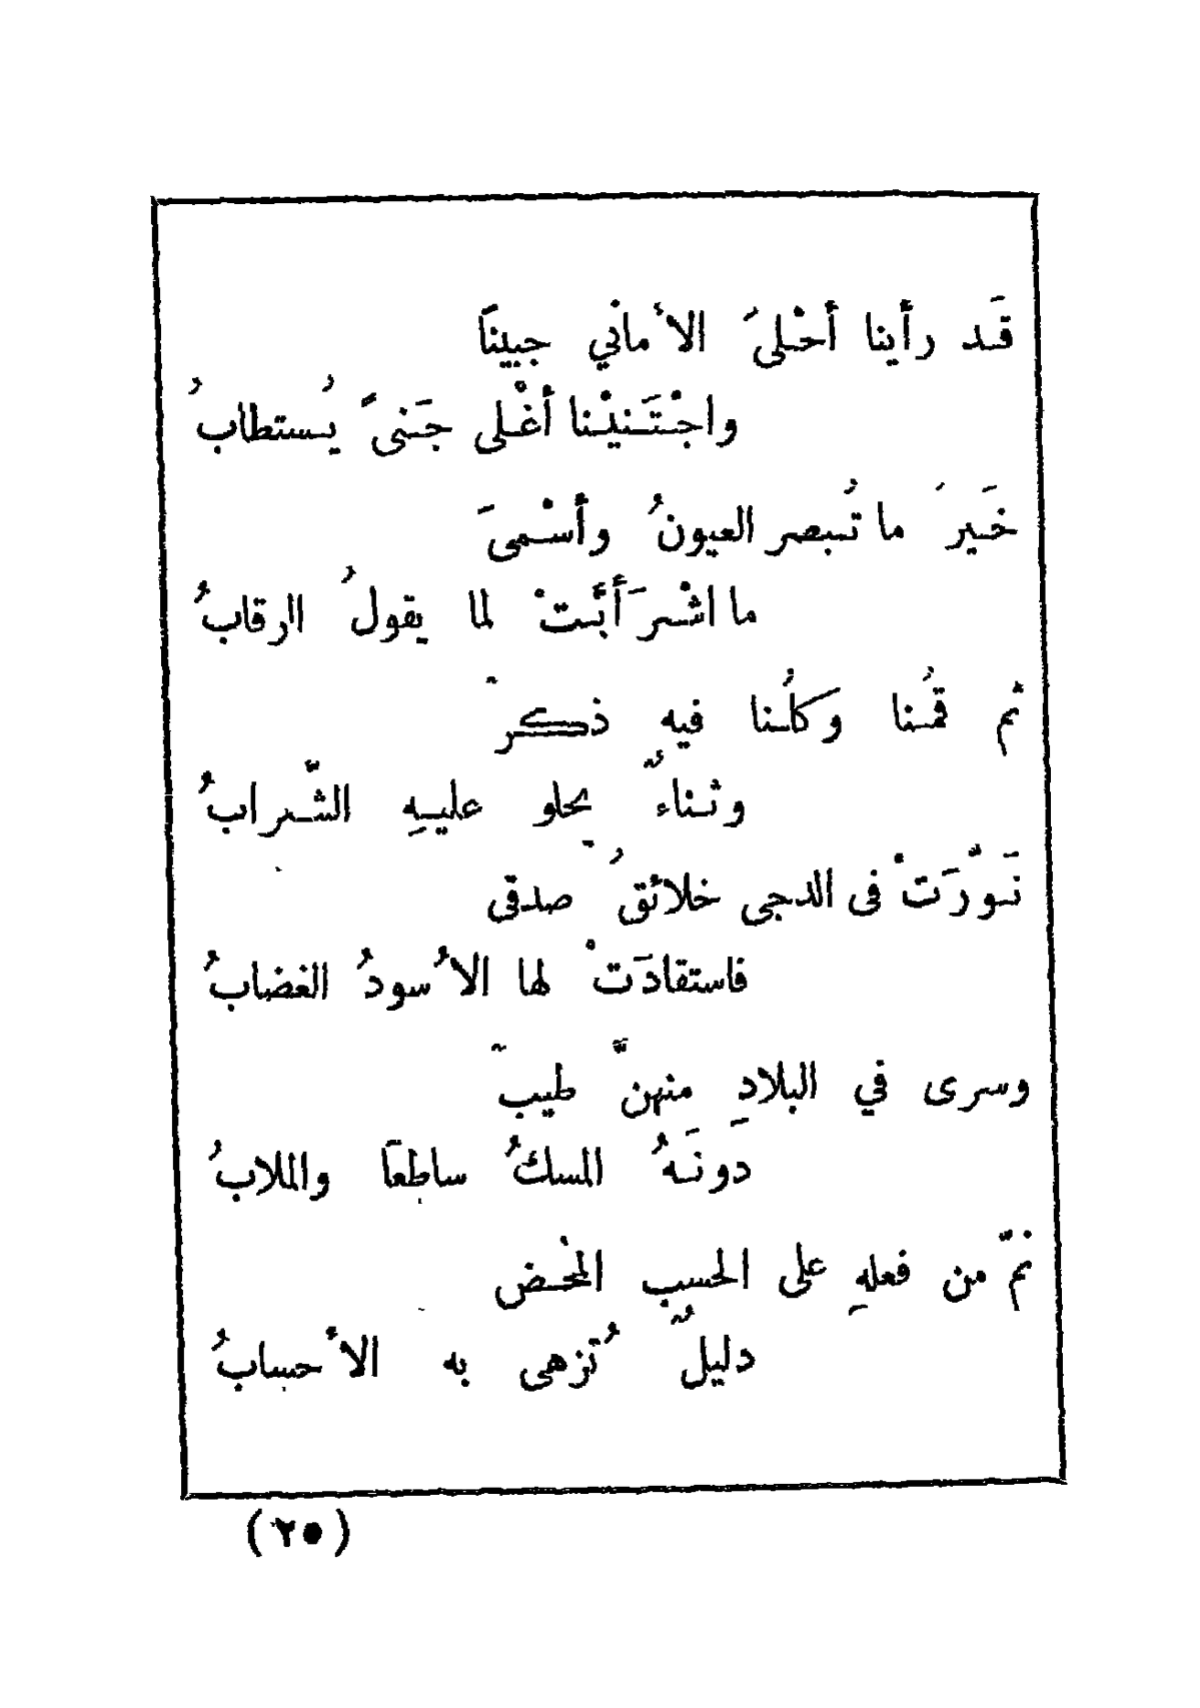 قَد رأينا أحْلىَ الأماني جبيناً
واجْتَنيْنا أغْلى جَنىً يُستطابُ
خَيرَ ما تُبصر العيونُ وأسْمىَ
ما اشْرَأَبَّتْ لما يقولُ الرقابُ
ثم قُمنا وكلُنا فيهِ ذكر
وثناءٌ يحلو عليهِ الشّرابُ
نَوّرَتْ فى الدجى خلائقُ صدقى
فاستقادَتْ لها الأُسودُ الغضابُ
وسرى في البلادِ منهنَّ طيب
دَونَهُ المسكُ ساطعاً والملابُ
نمّ من فعلهِ على الحسبِ المحْض
دليلٌ تُزهى به الأحسابُ
(٢٥)